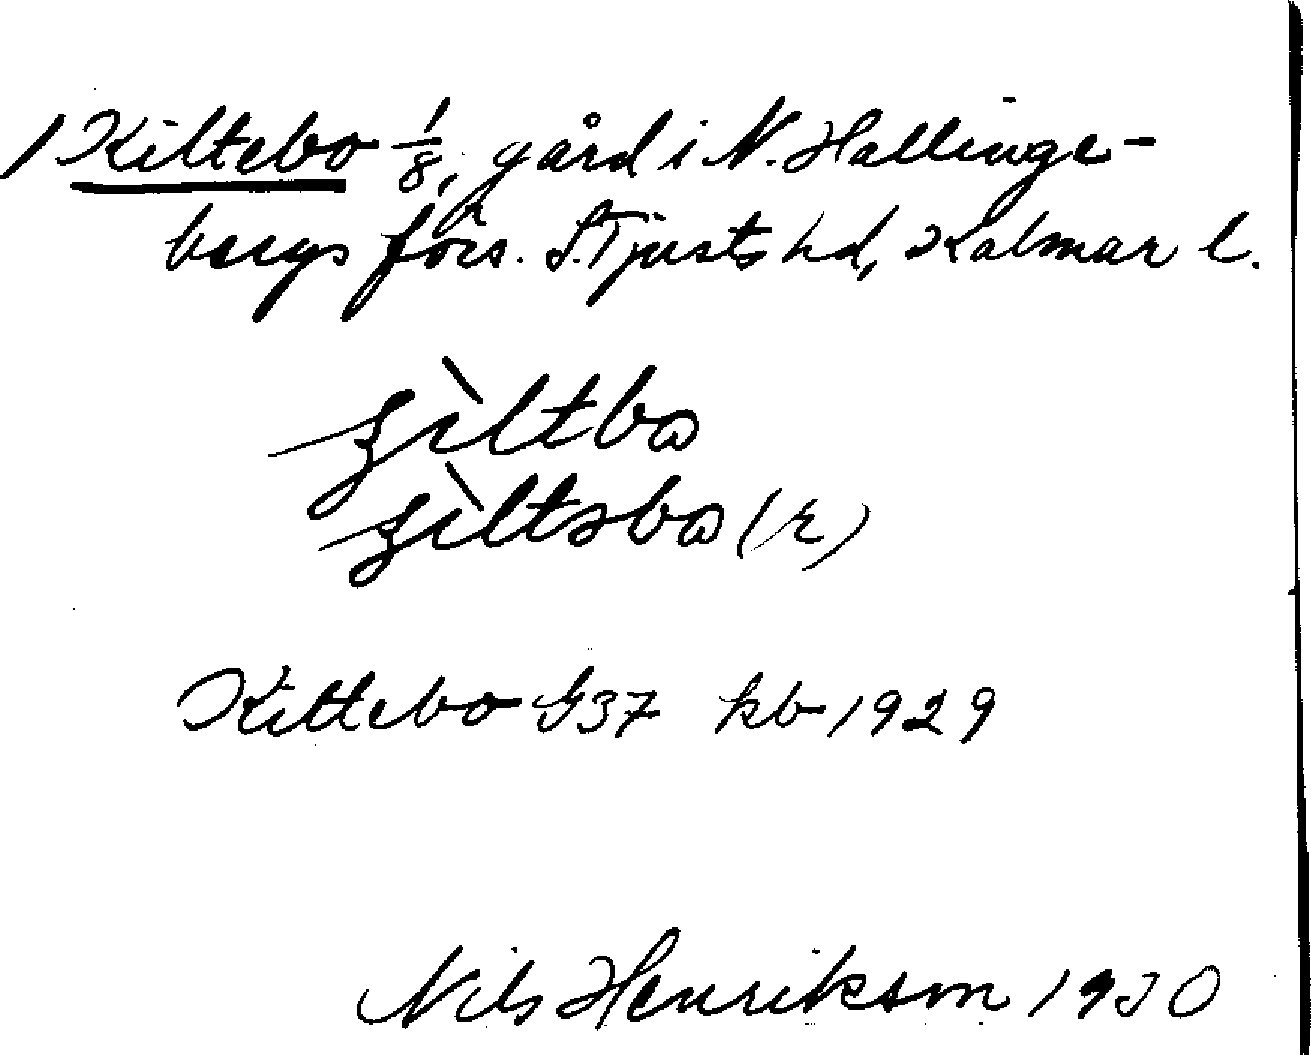 / Kiltebo 1/8, gård i N. Hallinge-
bergs förs. S. Tjusts hd, Kalmar l.
ʃìltbɷ
ʃìltəbɷ (r)
Kiltebo G37 kb 1929
Nils Henrikson 1930